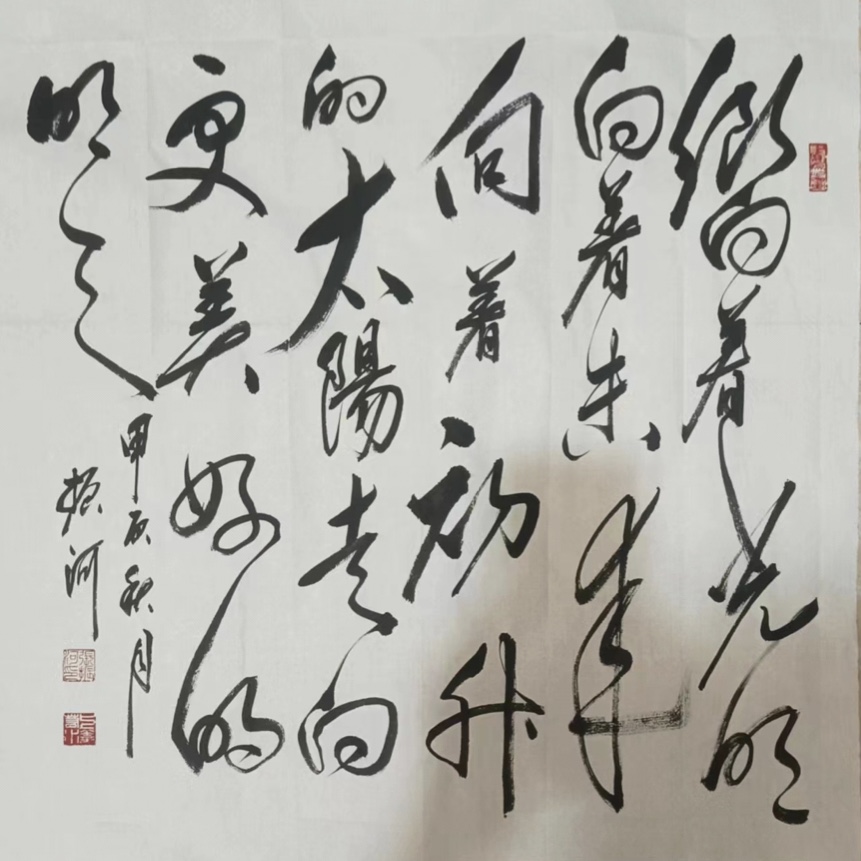 嚮着光明
向着未来
向着初升
的太陽走向
更美好的
明天
甲辰秋月
振河